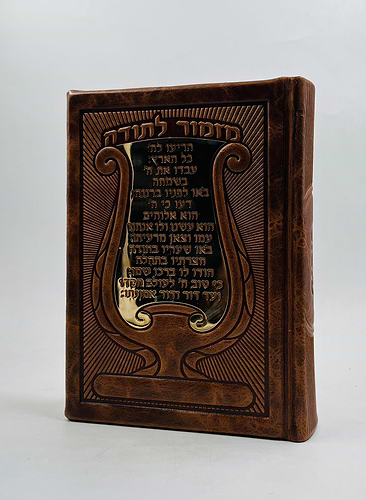 מזמור לתודה
הריעו לה'
כל הארץ:
עבדו את ה'
בשמחה
באו לפניו ברננה:
דעו כי ה'
הוא אלוהים
הוא עשנו ולו אנחנו
עמו וצאן מרעיתו:
באו שעריו בתודה
חצרתיו בתהלה
הודו לו ברכו שמו:
כי טוב ה' לעולם חסדו
ועד דור ודור אמונתו: